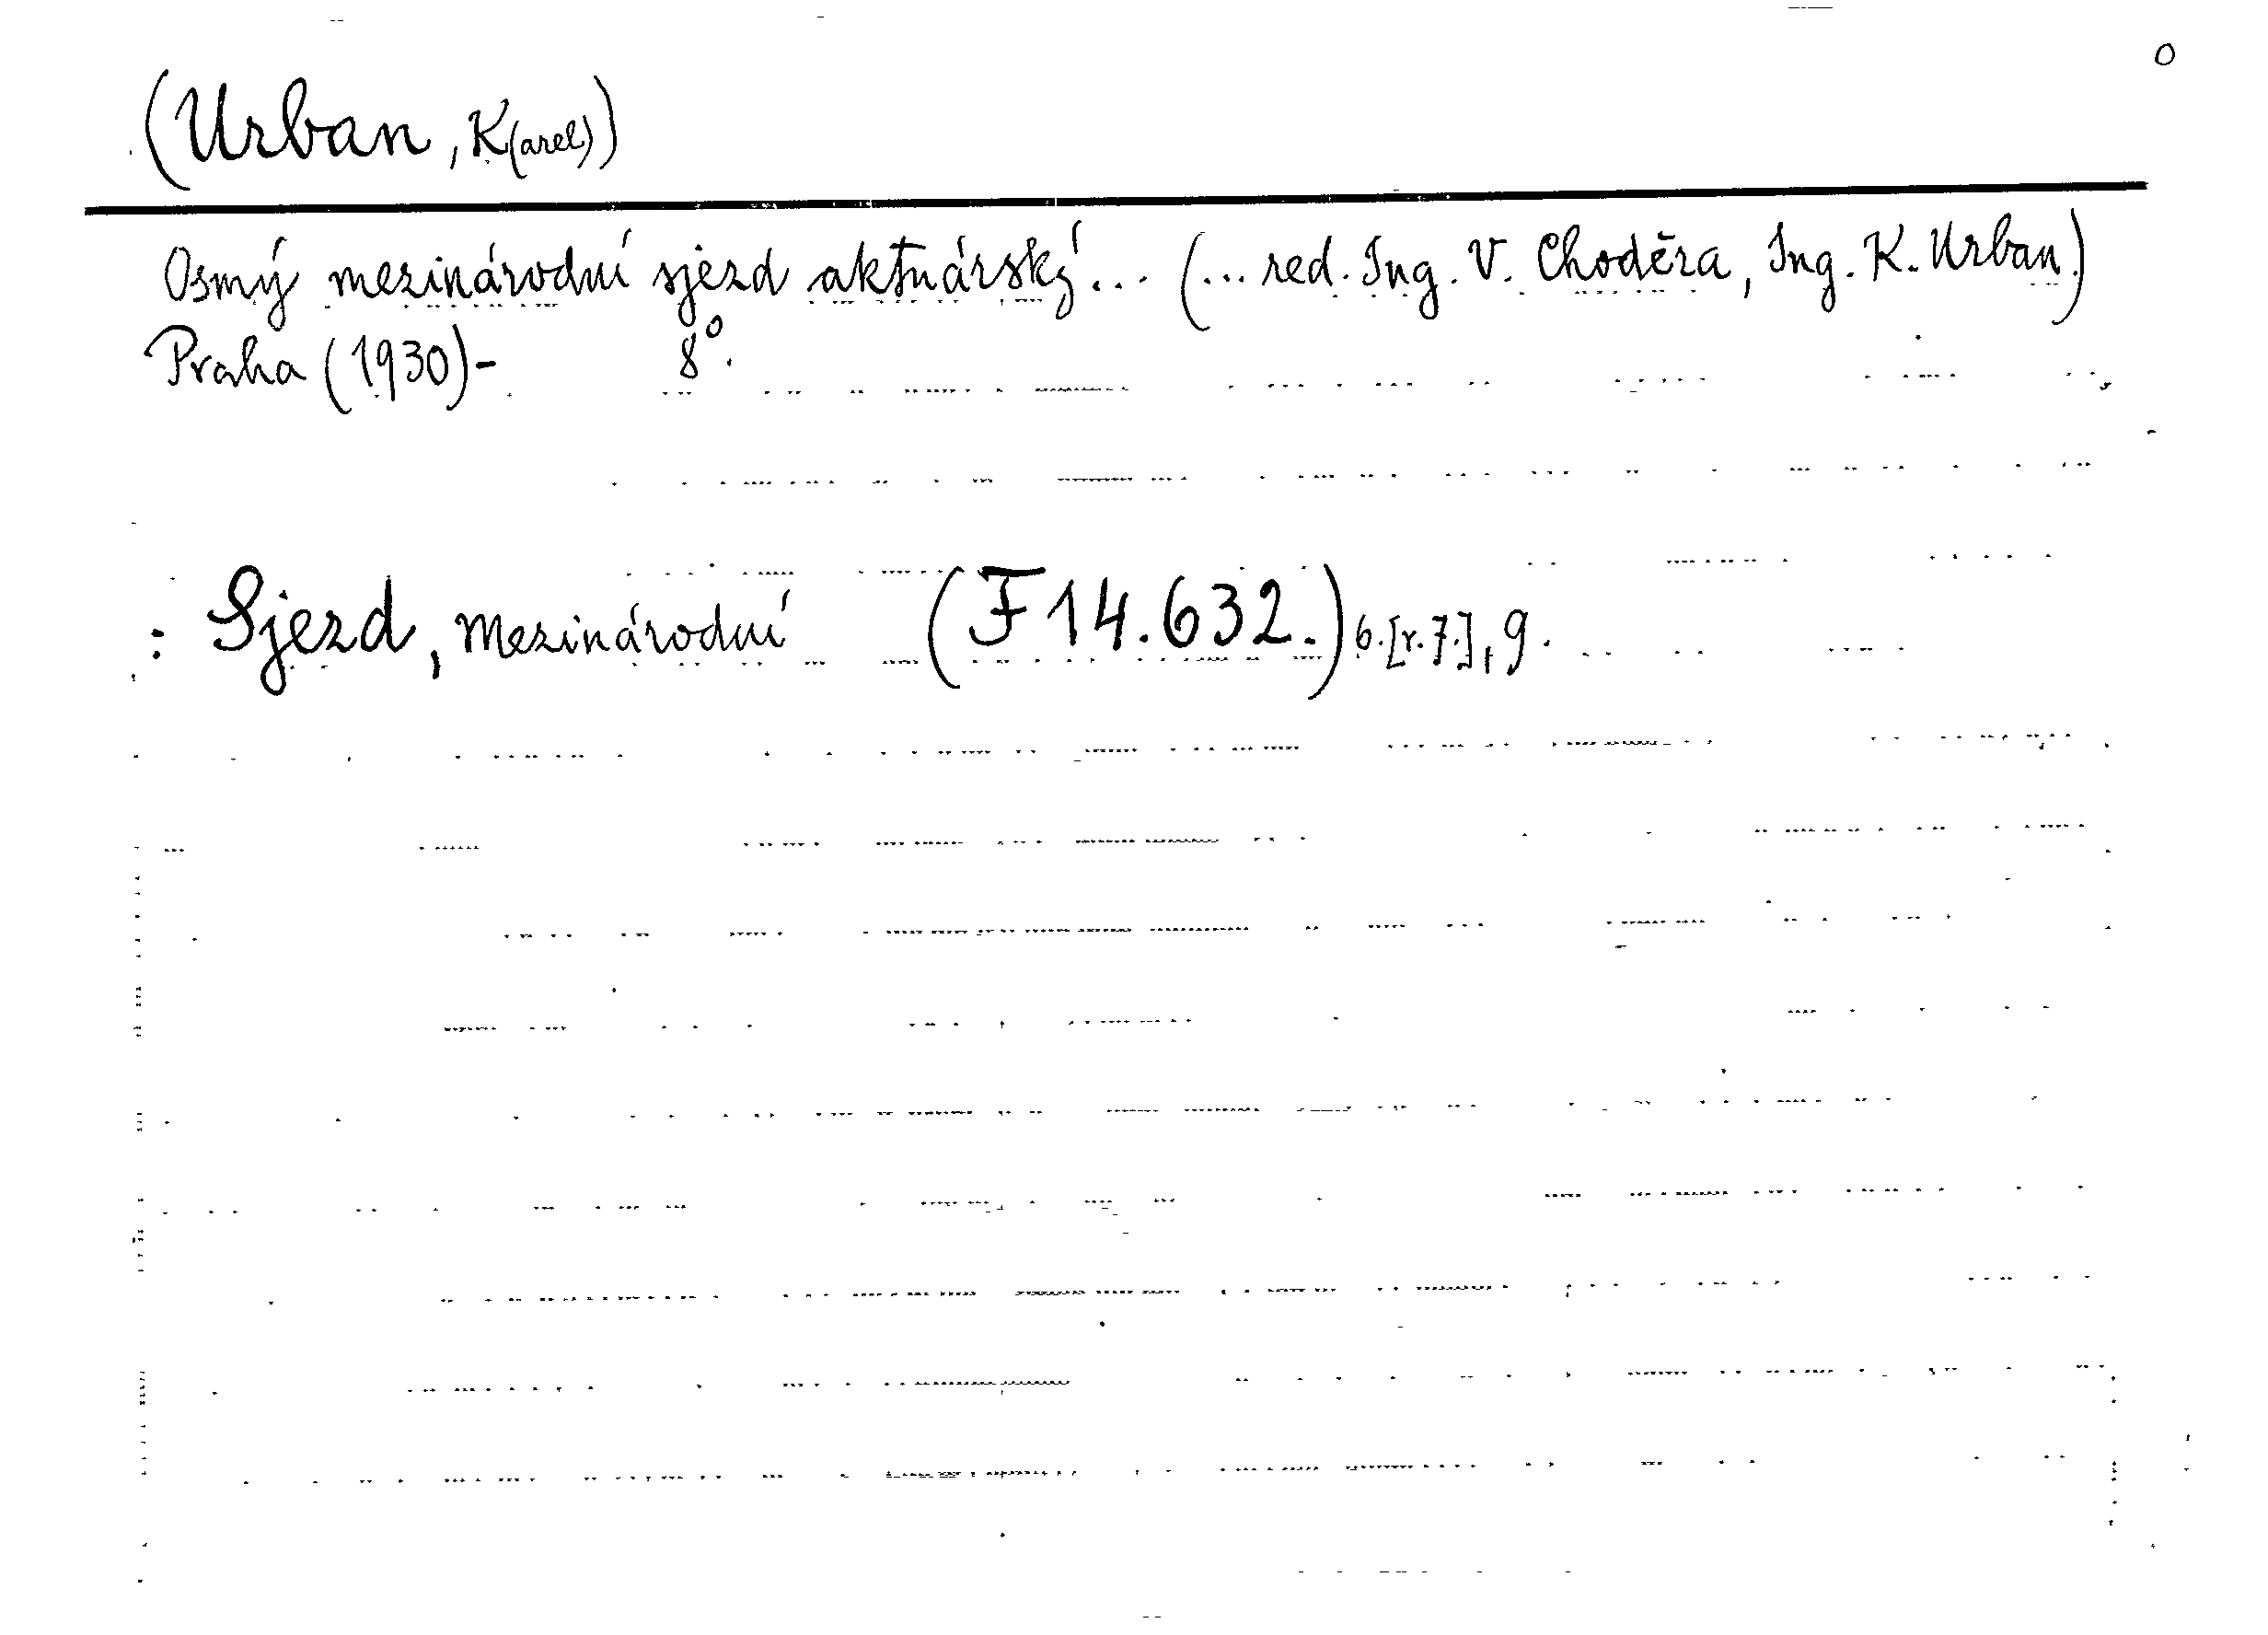 O
(Urban, K(arel))
Osmý mezinárodní sjezd aktuárský... (... red. Ing. V. Choděra, Ing. K. Urban.)
Praha (1930)- 8°.
: Sjezd, mezinárodní (F 14.632.) 6.[r.7.], 9.